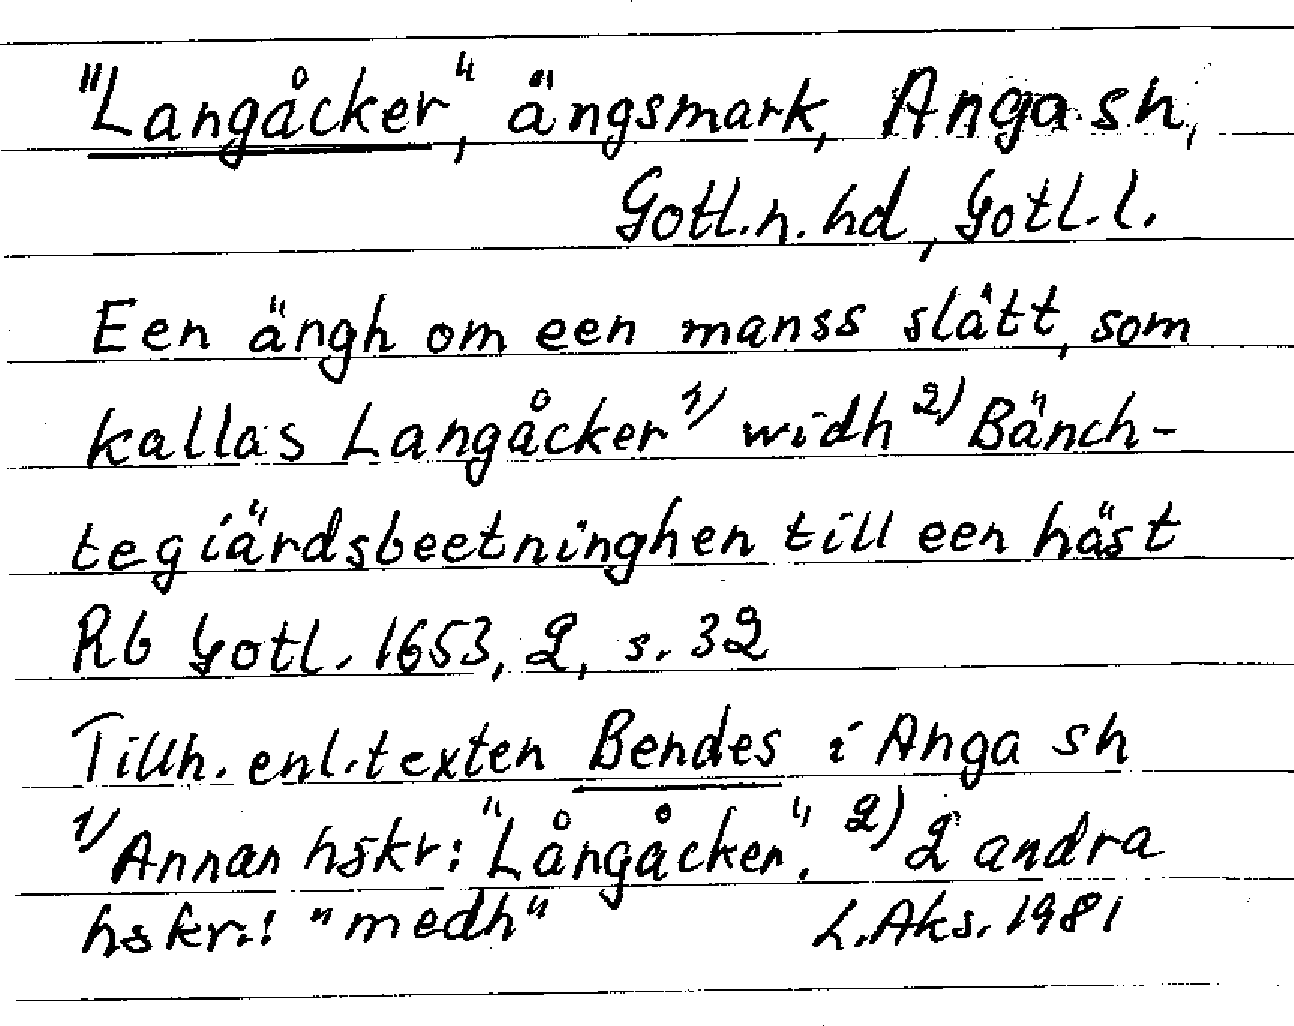 "Langåcker", ängsmark, Anga sn,
Gotl.n.hd, Gotl.l.
Een ängh om een manss slått, som
kallas Langåcker 1) widh 2) Bänch-
tegiärdsbeetninghen till een häst
Rb Gotl. 1653, 2, s. 32
Tillh. enl. texten Bendes i Anga sn
1) Annan hskr: "Långåcken". 2) 2 andra
hskr.: "medh" L.Aks. 1981